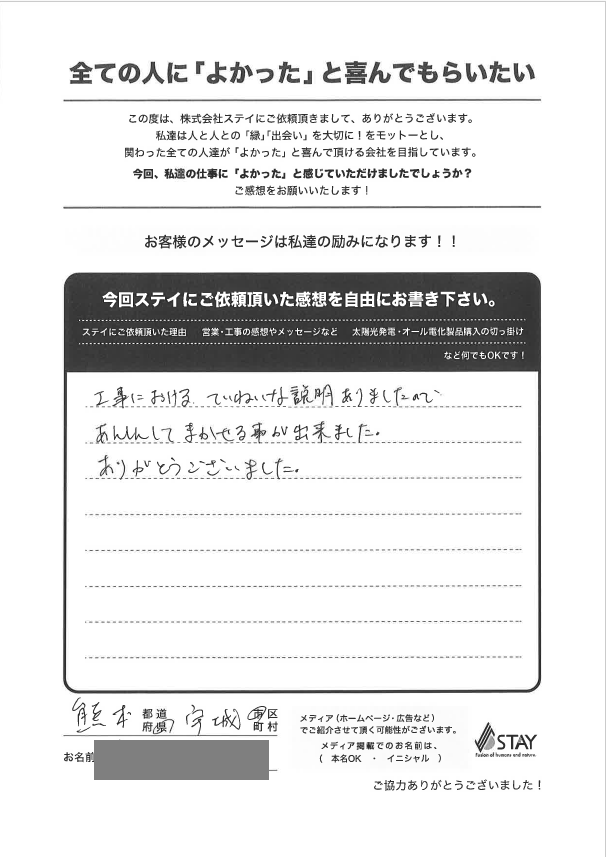 全ての人に「よかった」と喜んでもらいたい
この度は、株式会社ステイにご依頼頂きまして、ありがとうございます。
私達は人と人との「縁」「出会い」を大切に！をモットーとし、
関わった全ての人達が「よかった」と喜んで頂ける会社を目指しています。
今回、私達の仕事に「よかった」と感じていただけましたでしょうか？
ご感想をお願いいたします！
お客様のメッセージは私達の励みになります！！
今回ステイにご依頼頂いた感想を自由にお書き下さい。
ステイにご依頼頂いた理由　営業・工事の感想やメッセージなど　太陽光発電・オール電化製品購入の切っ掛け
など何でもOKです！
工事における、ていねいな説明ありましたので
あんしんしてまかせる事が出来ました。
ありがとうございました。
熊本 都道府県 宇城 市区町村
お名前
メディア（ホームページ・広告など）
でご紹介させて頂く可能性がございます。
メディア掲載でのお名前は、
（　本名OK　・　イニシャル　）
STAY
Fusion of humans and nature.
ご協力ありがとうございました！